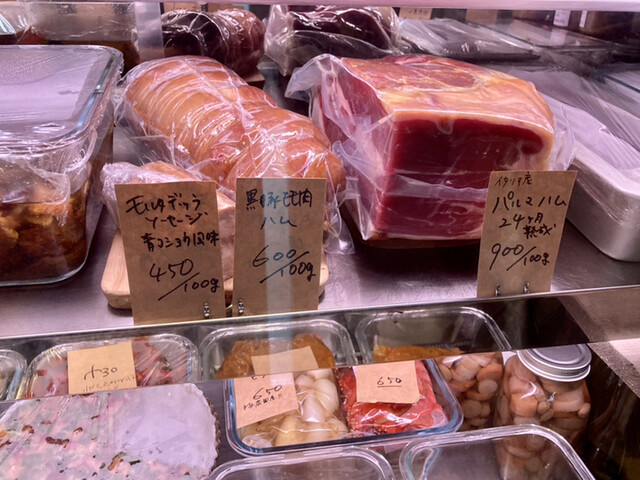 モルタデッラ
ソーセージ
青コショウ風味
450/100g
黒豚モモ肉
ハム
600/100g
イタリア産
パルマハム
24ヶ月
熟成
900/100g
650